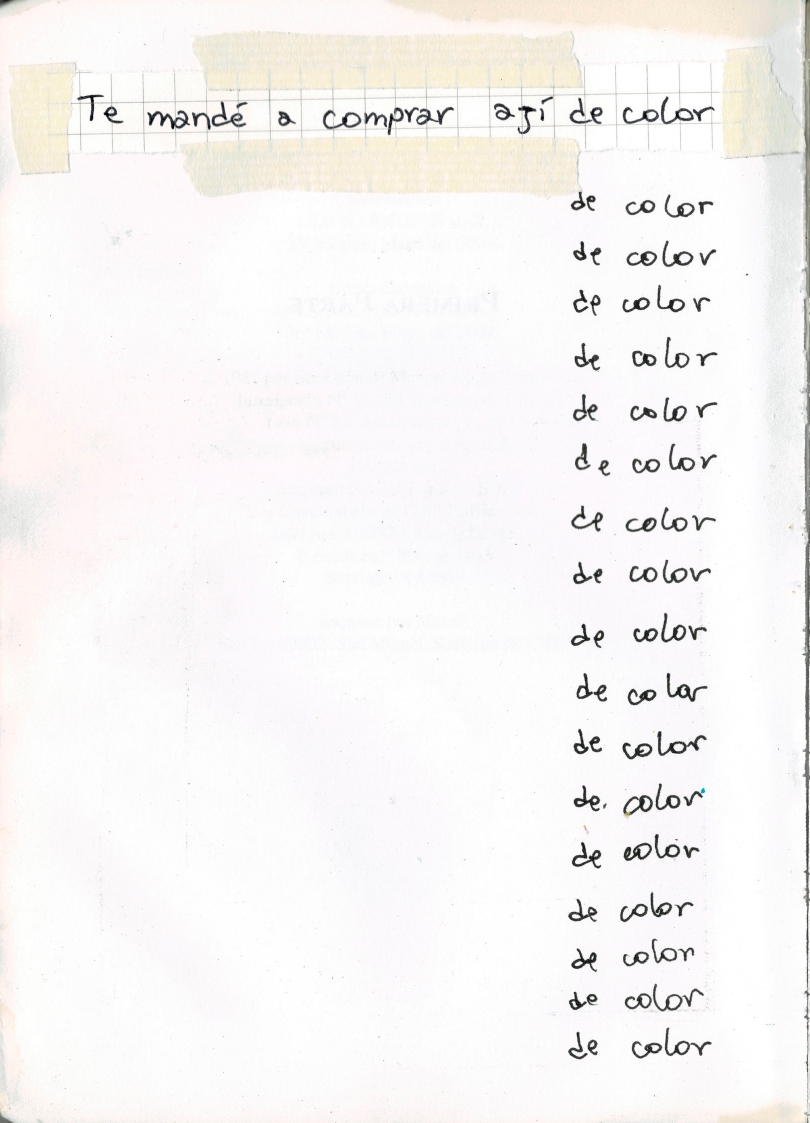 Te mandé a comprar ají de color
de color
de color
de color
de color
de color
de color
de color
de color
de color
de color
de color
de color
de color
de color
de color
de color
de color
PRIMERA PARTE